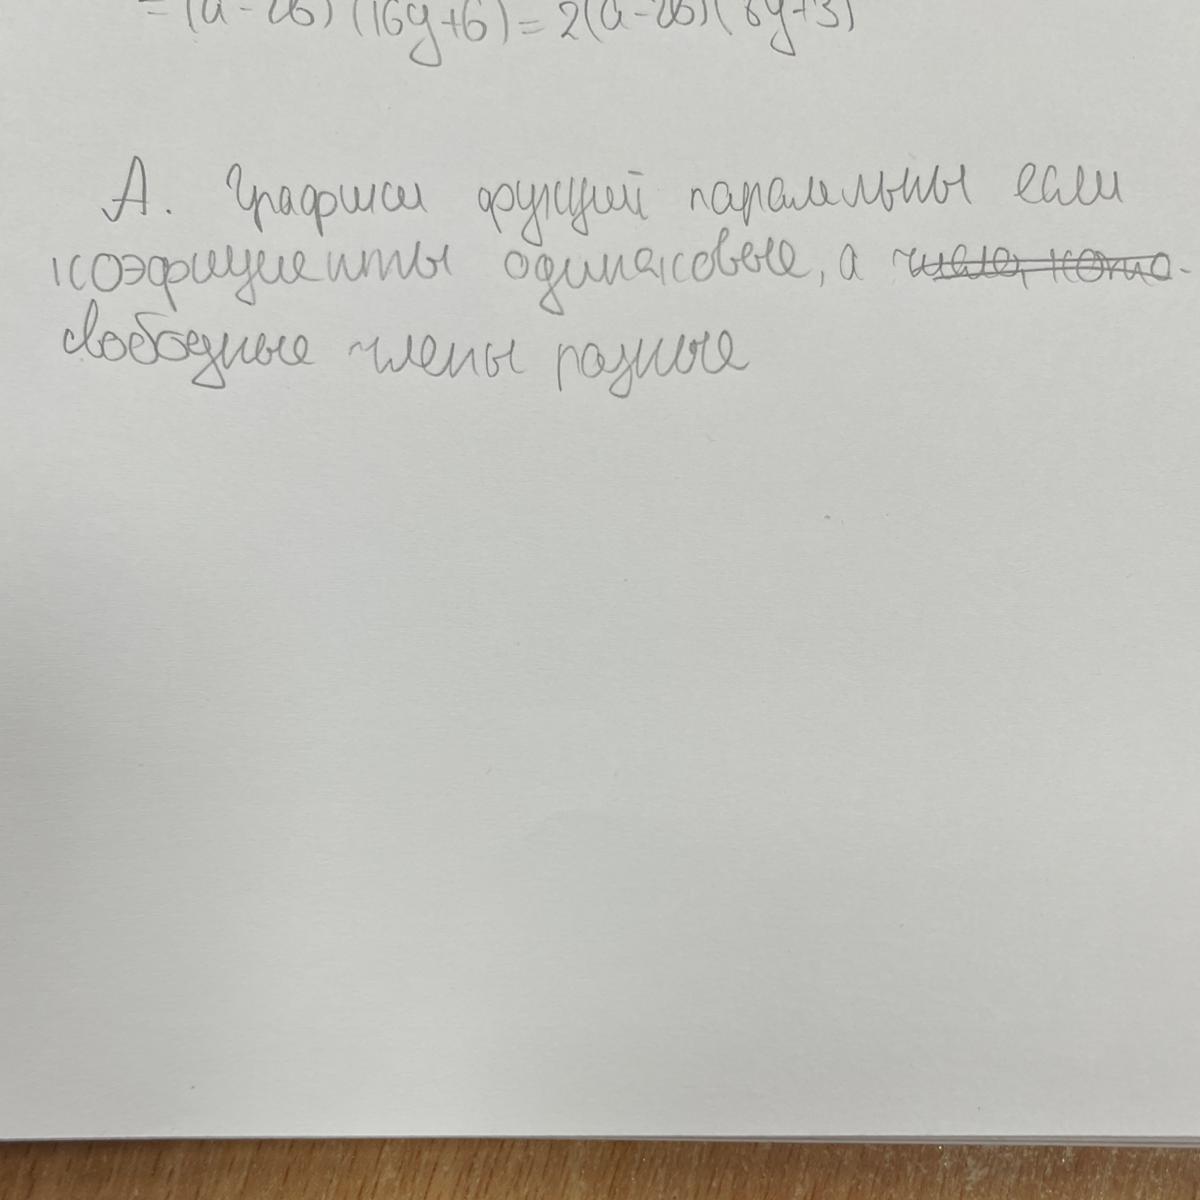 = (a - 2b) (16y+6) = 2(a-2b) (8y+3)
А. Графики фукций паралельны если
коэфициенты одинаковые, а
свободные члены разные